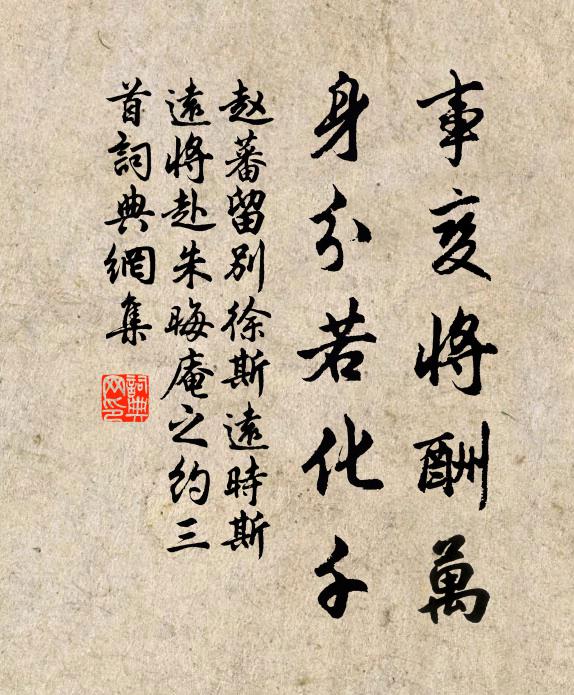 事变将酬萬
身分若化千
赵蕃留别徐斯遠時斯
遠将赴朱晦庵之約三
首詞典網集
詞典
网印